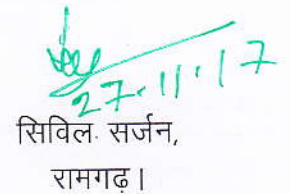 27.11.17
सिविल सर्जन,
रामगढ़।